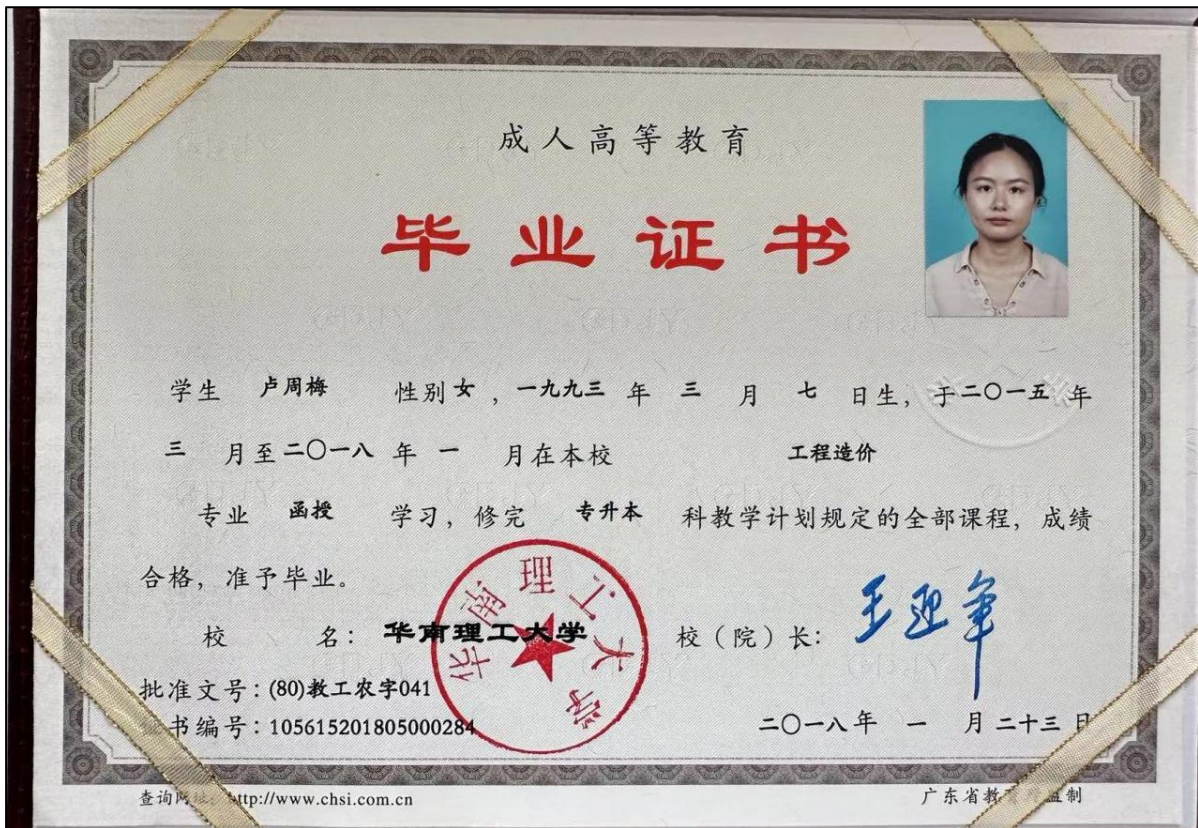 成人高等教育
毕业证书
学生 卢周梅 性别 女 ，一九九三 年 三 月 七 日生，于二〇一五 年
三 月至二〇一八 年 一 月在本校 工程造价
专业 函授 学习，修完 专升本 科教学计划规定的全部课程，成绩
合格，准予毕业。
华南理工大学
校 名：华南理工大学 校（院）长：王迎军
批准文号：(80)教工农字041
证书编号：105615201805000284 二〇一八年 一 月 二十三 日
查询网址：http://www.chsi.com.cn 广东省教育厅监制